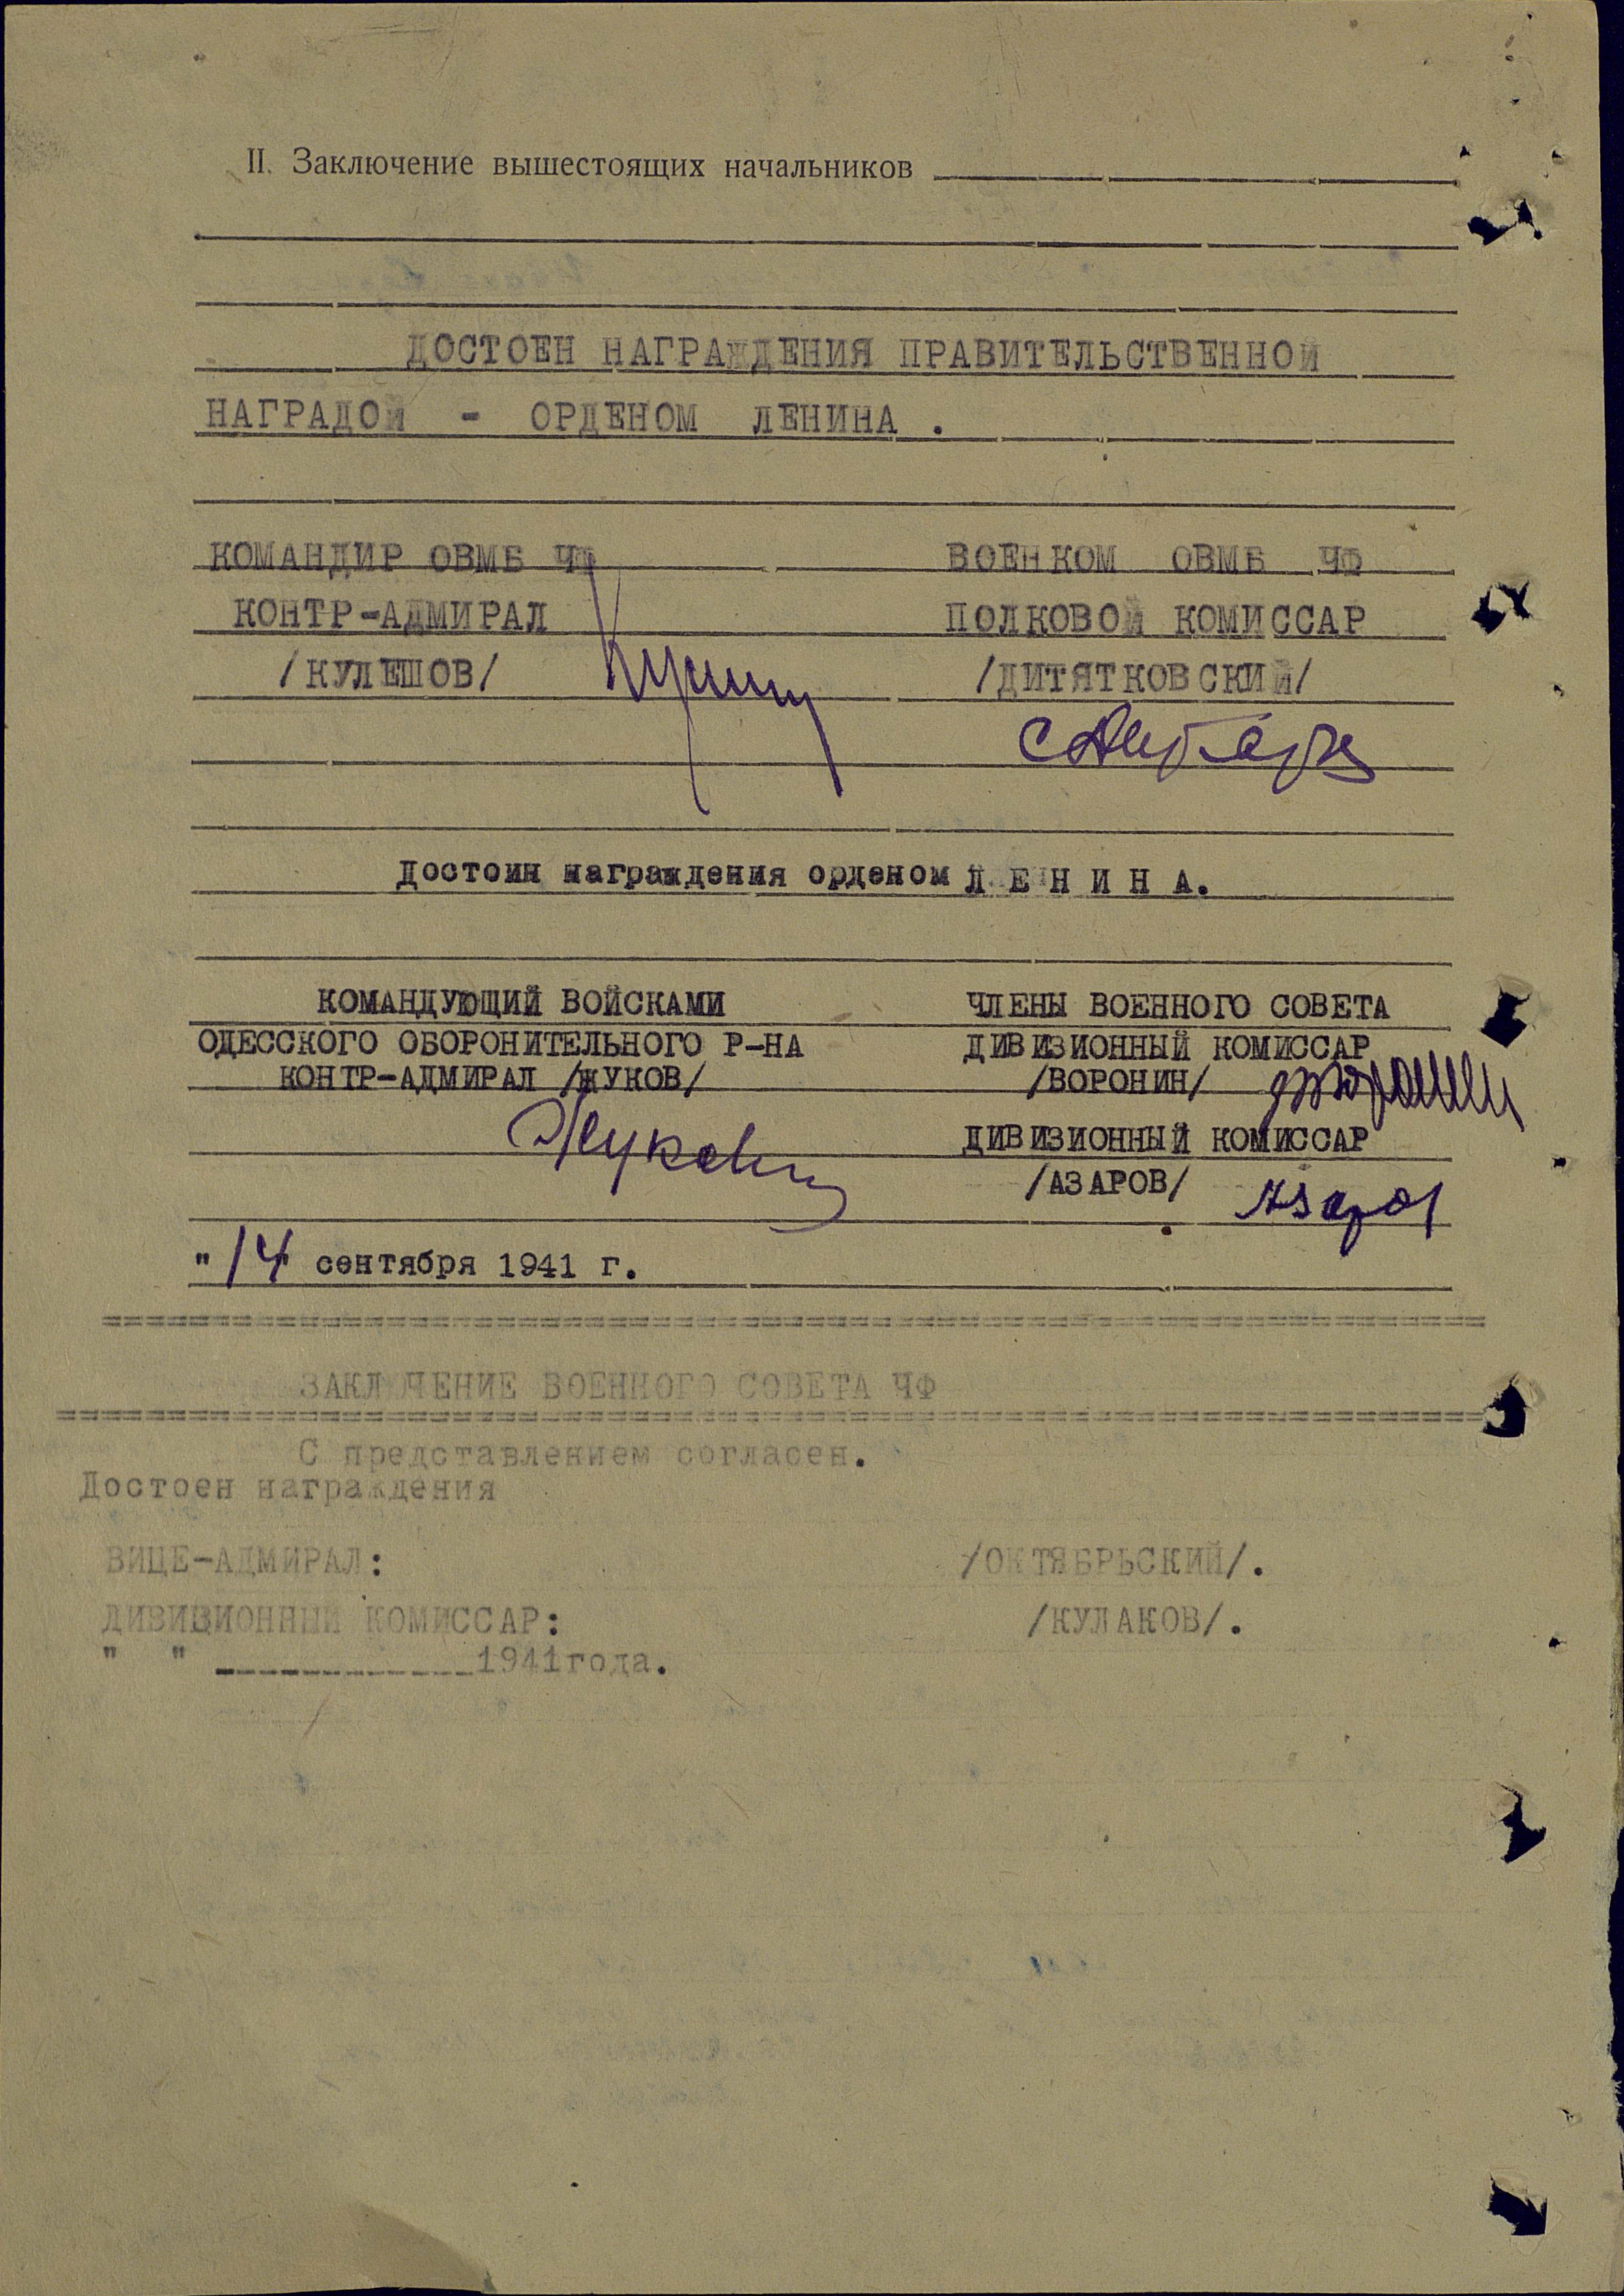 II. Заключение вышестоящих начальников
ДОСТОЕН НАГРАЖДЕНИЯ ПРАВИТЕЛЬСТВЕННОЙ
НАГРАДОЙ - ОРДЕНОМ ЛЕНИНА .
КОМАНДИР ОВМБ ЧФ ВОЕНКОМ ОВМБ ЧФ
КОНТР-АДМИРАЛ ПОЛКОВОЙ КОМИССАР
/КУЛЕШОВ/ /ДИТЯТКОВСКИЙ/
Достоин награждения орденом Л Е Н И Н А.
КОМАНДУЮЩИЙ ВОЙСКАМИ ЧЛЕНЫ ВОЕННОГО СОВЕТА
ОДЕССКОГО ОБОРОНИТЕЛЬНОГО Р-НА ДИВИЗИОННЫЙ КОМИССАР
КОНТР-АДМИРАЛ /ЖУКОВ/ /ВОРОНИН/
Жуков ДИВИЗИОННЫЙ КОМИССАР
/АЗАРОВ/ Азаров
"14 сентября 1941 г.
ЗАКЛЮЧЕНИЕ ВОЕННОГО СОВЕТА ЧФ
С представлением согласен.
Достоен награждения
ВИЦЕ-АДМИРАЛ: /ОКТЯБРЬСКИЙ/.
ДИВИЗИОННЫЙ КОМИССАР: /КУЛАКОВ/.
" " ____________1941года.